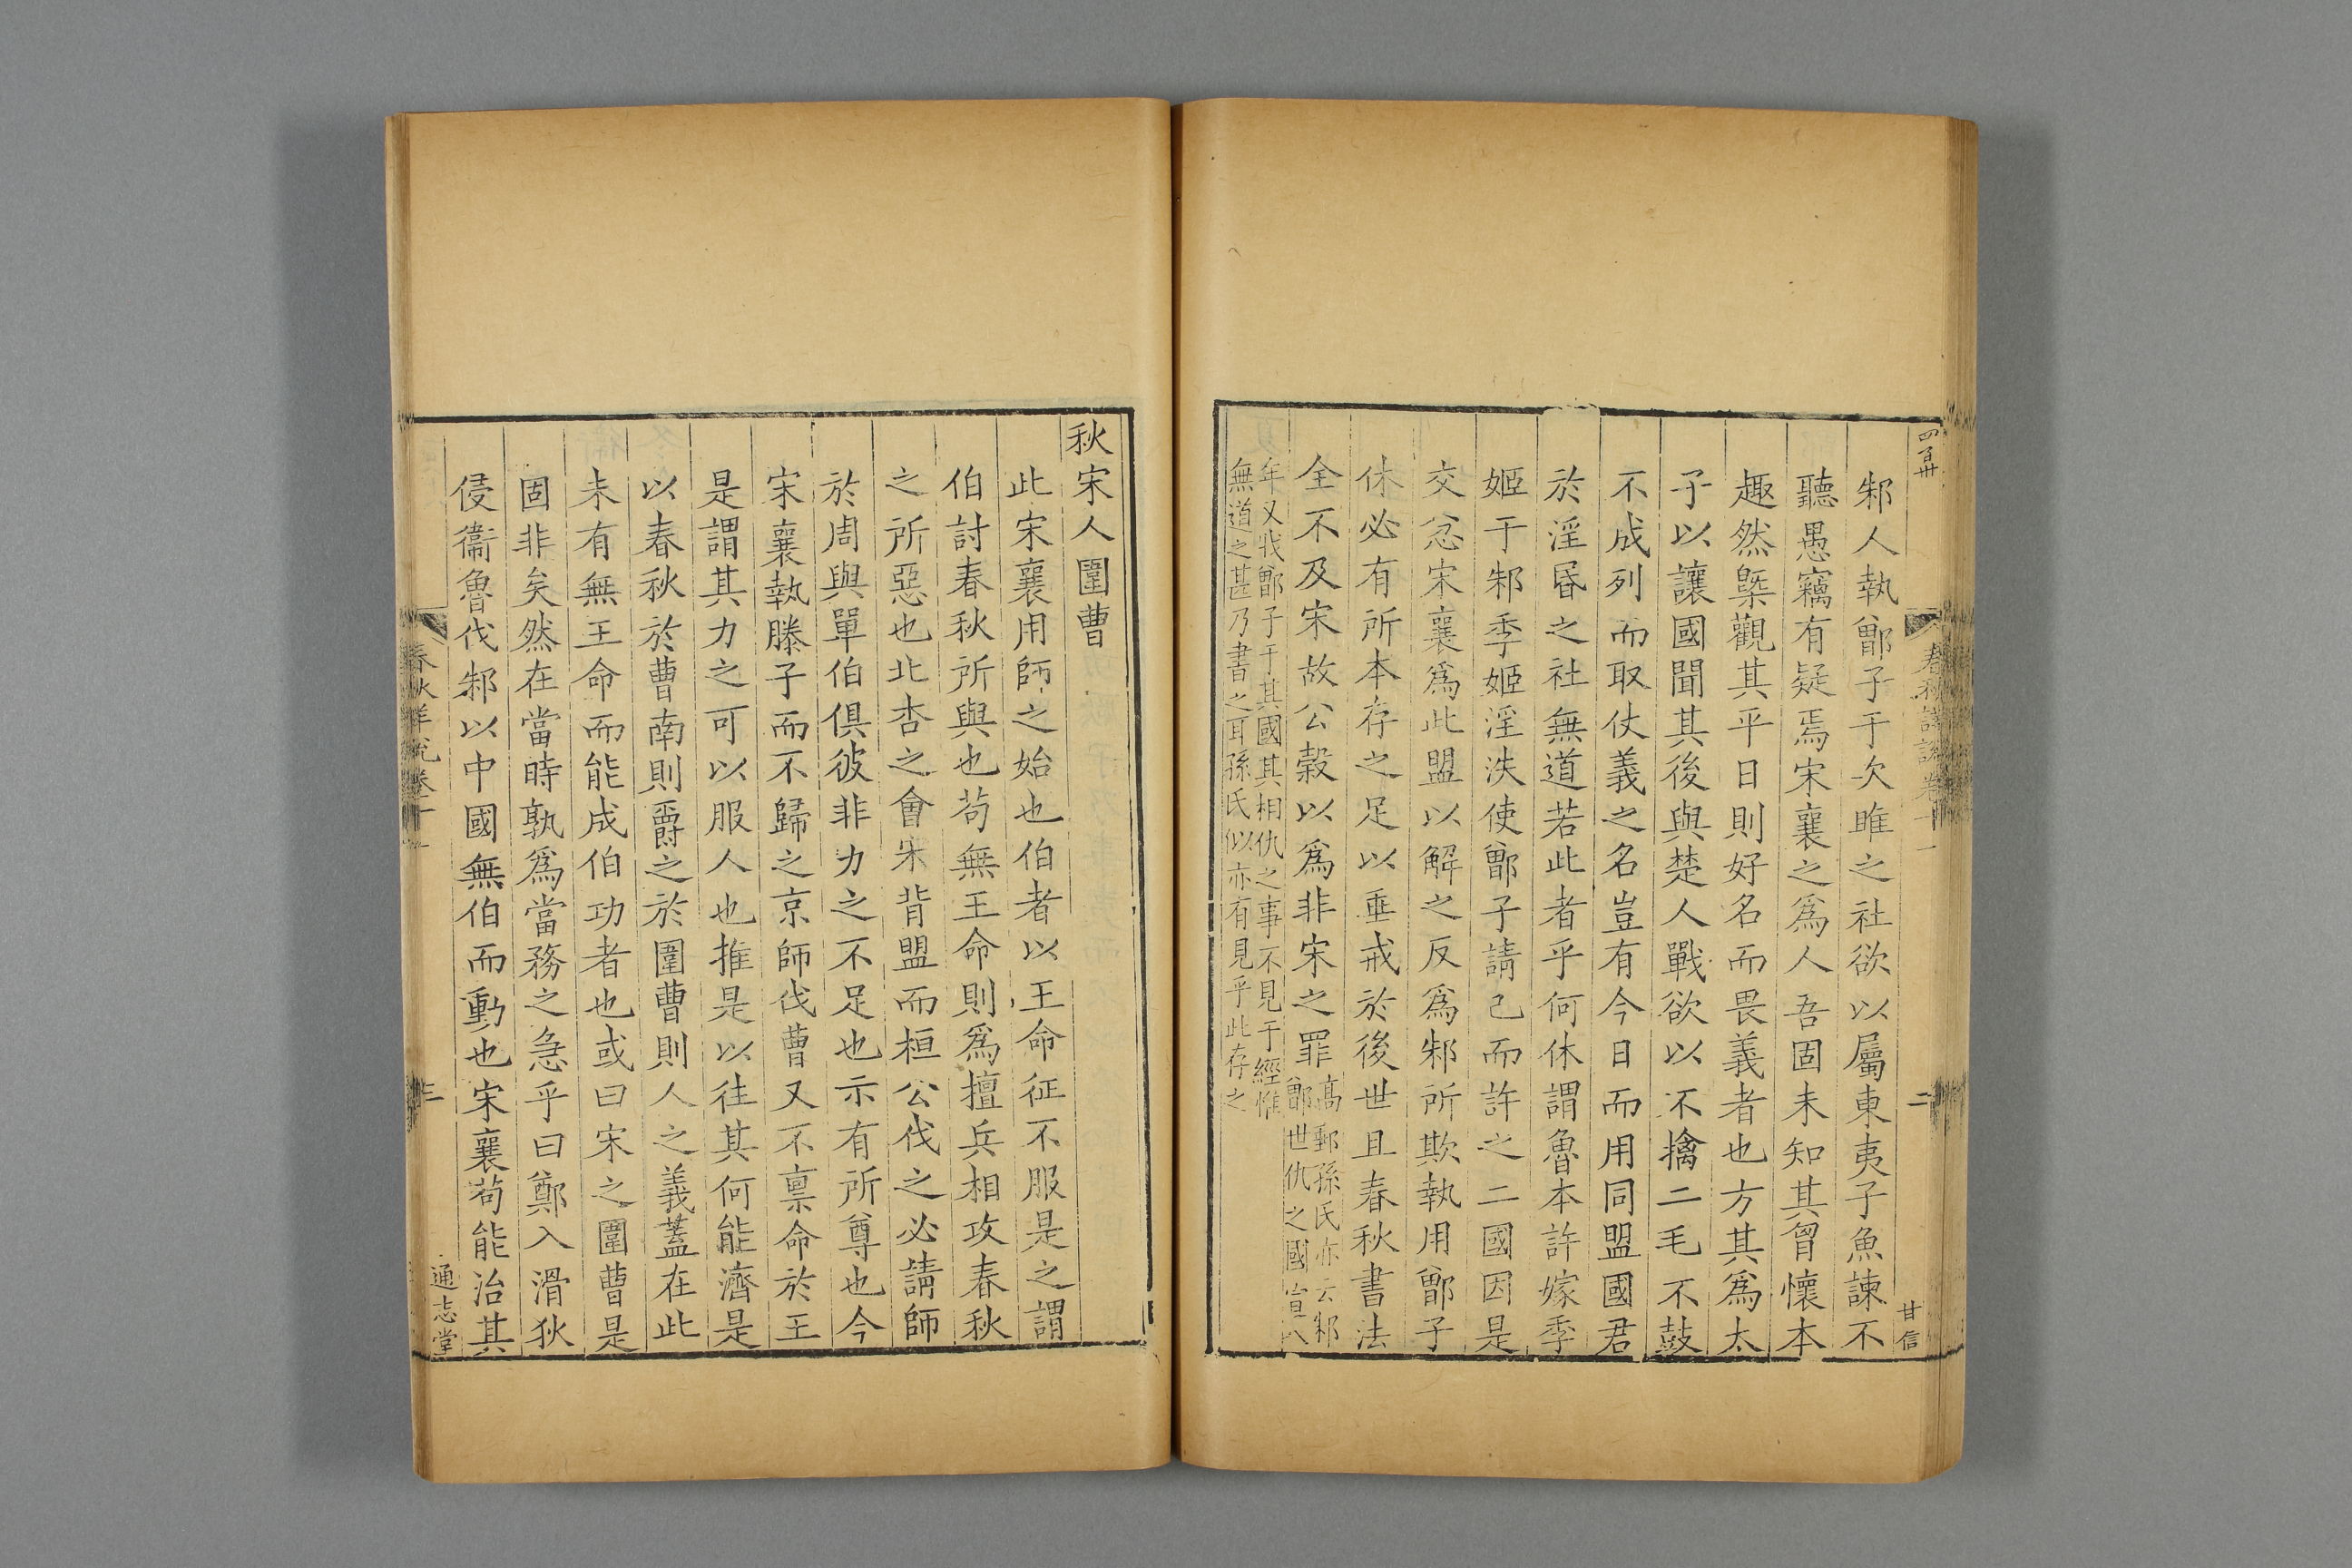 四百卅
春秋詳說卷十一
二
甘信
邾人執鄫子于次睢之社欲以屬東夷子魚諫不
聽愚竊有疑焉宋襄之爲人吾固未知其胷懷本
趣然槩觀其平日則好名而畏義者也方其爲太
子以讓國聞其後與楚人戰欲以不擒二毛不鼓
不成列而取仗義之名豈有今日而用同盟國君
於淫昬之社無道若此者乎何休謂魯本許嫁季
姬于邾季姬淫泆使鄫子請己而許之二國因是
交忿宋襄爲此盟以解之反爲邾所欺執用鄫子
休必有所本存之足以垂戒於後世且春秋書法
全不及宋故公榖以爲非宋之罪
高郵孫氏亦云邾
鄫世仇之國宣八
年又戕鄫子于其國其相仇之事不見于經惟
無道之甚乃書之耳孫氏似亦有見乎此存之
秋宋人圍曹
此宋襄用師之始也伯者以王命征不服是之謂
伯討春秋所與也茍無王命則爲擅兵相攻春秋
之所惡也北杏之會宋背盟而桓公伐之必請師
於周與單伯俱彼非力之不足也示有所尊也今
宋襄執滕子而不歸之京師伐曹又不禀命於王
是謂其力之可以服人也推是以往其何能濟是
以春秋於曹南則爵之於圍曹則人之義蓋在此
未有無王命而能成伯功者也或曰宋之圍曹是
固非矣然在當時孰爲當務之急乎曰鄭入滑狄
侵衞魯伐邾以中國無伯而動也宋襄茍能治其
春秋詳說卷十一
三
通志堂